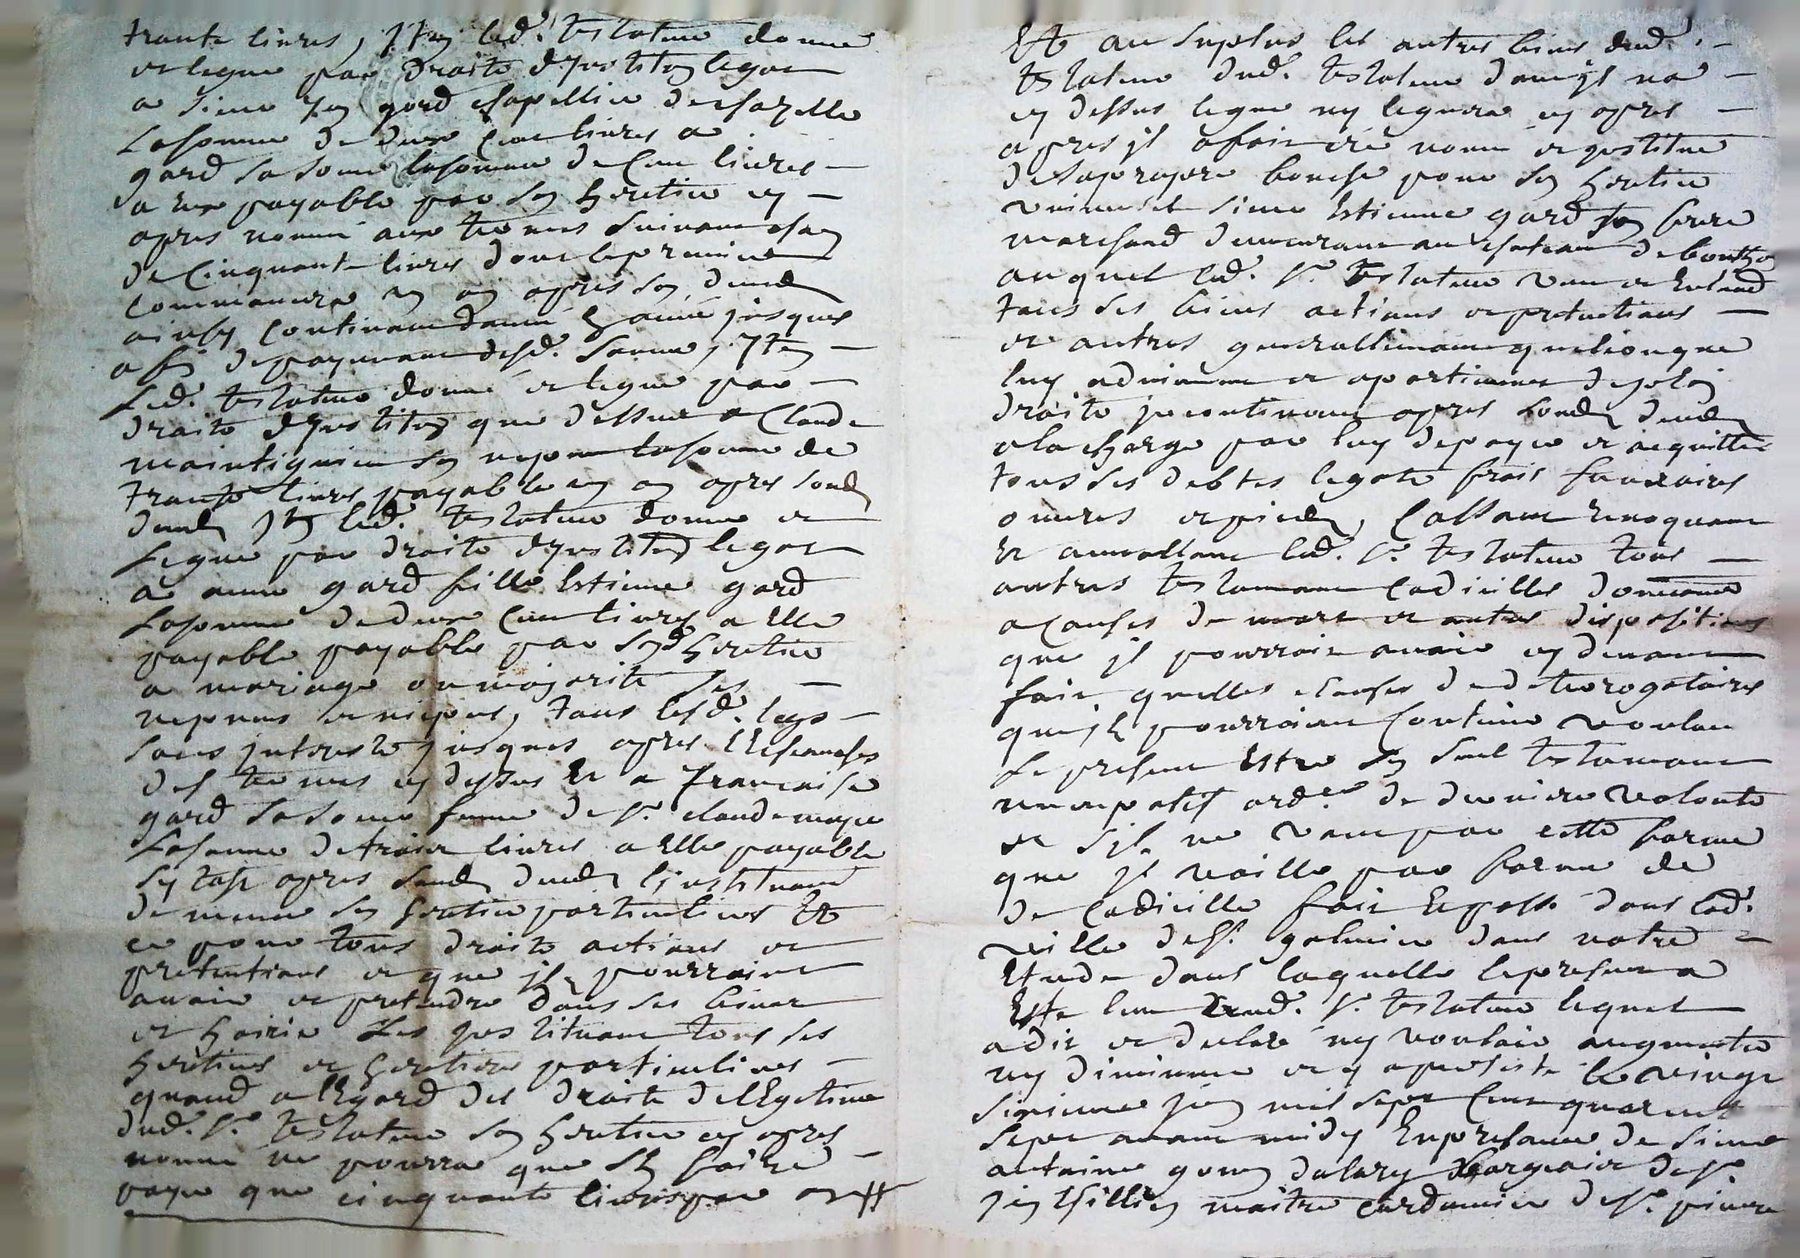 trante livres, Item led. testateur donne
et legue par droit d'Institution legat
a sieur Jean gard chapellier de chazelle
La somme de deux cent livres a
gard sa soeur la somme de Cent livres
a eux payable par son heritier cy
apres nommé aux termes suivant chascun
de Cinquante livres dont le premier
Commancera un an apres son deceds
ainsy Continuant d'année a année jusques
a fin de payement desd. sommes, Item
Led. testateur donne et legue par
droit d'Institution que dessus a Claude
son nepveu la somme de
trante livres payable un an apres sond.
deceds Item led. testateur donne et
Legue par droit d'Institution legat
a anne gard fille Estienne gard
La somme de deux Cent livres a Elle
payable payable par sond heritier
a mariage ou majorité ses
nepveus et niepces, tous lesd. legs
sans interests jusques apres l'Escheance
des termes cy dessus Et a francoise
gard sa soeur femme de Sr. claude
La somme de trois livres a Elle payable
sy tost apres sond deceds l'instituant
de mesme son heritiere particuliere Et
ce pour tous droits actions et
pretentions et que ils pourroient
avoir et pretendre dans ses biens
et hoirie Les Instituant tous ses
heritiers et heritieres particulieres
quand a l'Egard des droits de legitime
dud. Sr. testateur son heritier cy apres
nommé ne pourra que se faire
payer que cinquante livres par an
Et au surplus les autres biens dud.
testateur dud. testateur dont il n'a
cy dessus legué ny leguera cy apres
apres il a fait créé nommé et institué
de sa propre bouche pour son heritier
universel sieur Estienne gard son frere
marchand demeurant au chateau de bouthon
auquel led. Sr. testateur veut et Entend
tous ses biens actions et pretentions
et autres generallement quelconque
luy adviennent et apartiennent de plein
droit incontinant apres sond deceds
a la charge par luy de payer et acquitter
tous ses debtes legats frais funeraires
oeuvres et pieds, Cassant revoquant
Et annullant led. Sr. testateur tous
autres testamant Codicilles donnations
a Causes de mort et autres dispositions
que il pourroit avoir cy devant
fait quelles clauses derogatoires
qu'il pourroient Contenir voulant
Le present Estre son seul testamant
nuncupatif et de derniere volonté
et s'il ne vaut par cette forme
que il vaille par forme de
de Codicille fait Et passé dans lad.
ville de St. galmier dans notre
Etude dans laquelle le present a
Este leu aud. Sr. testateur lequel
a dit et declaré ny vouloir augmenter
ny diminuer et y a persisté le vingt
sixieme juin mil sept Cent quarente
sept avant midy En presance de sieur
antoine
maitre cordonnier de Sr. pierre